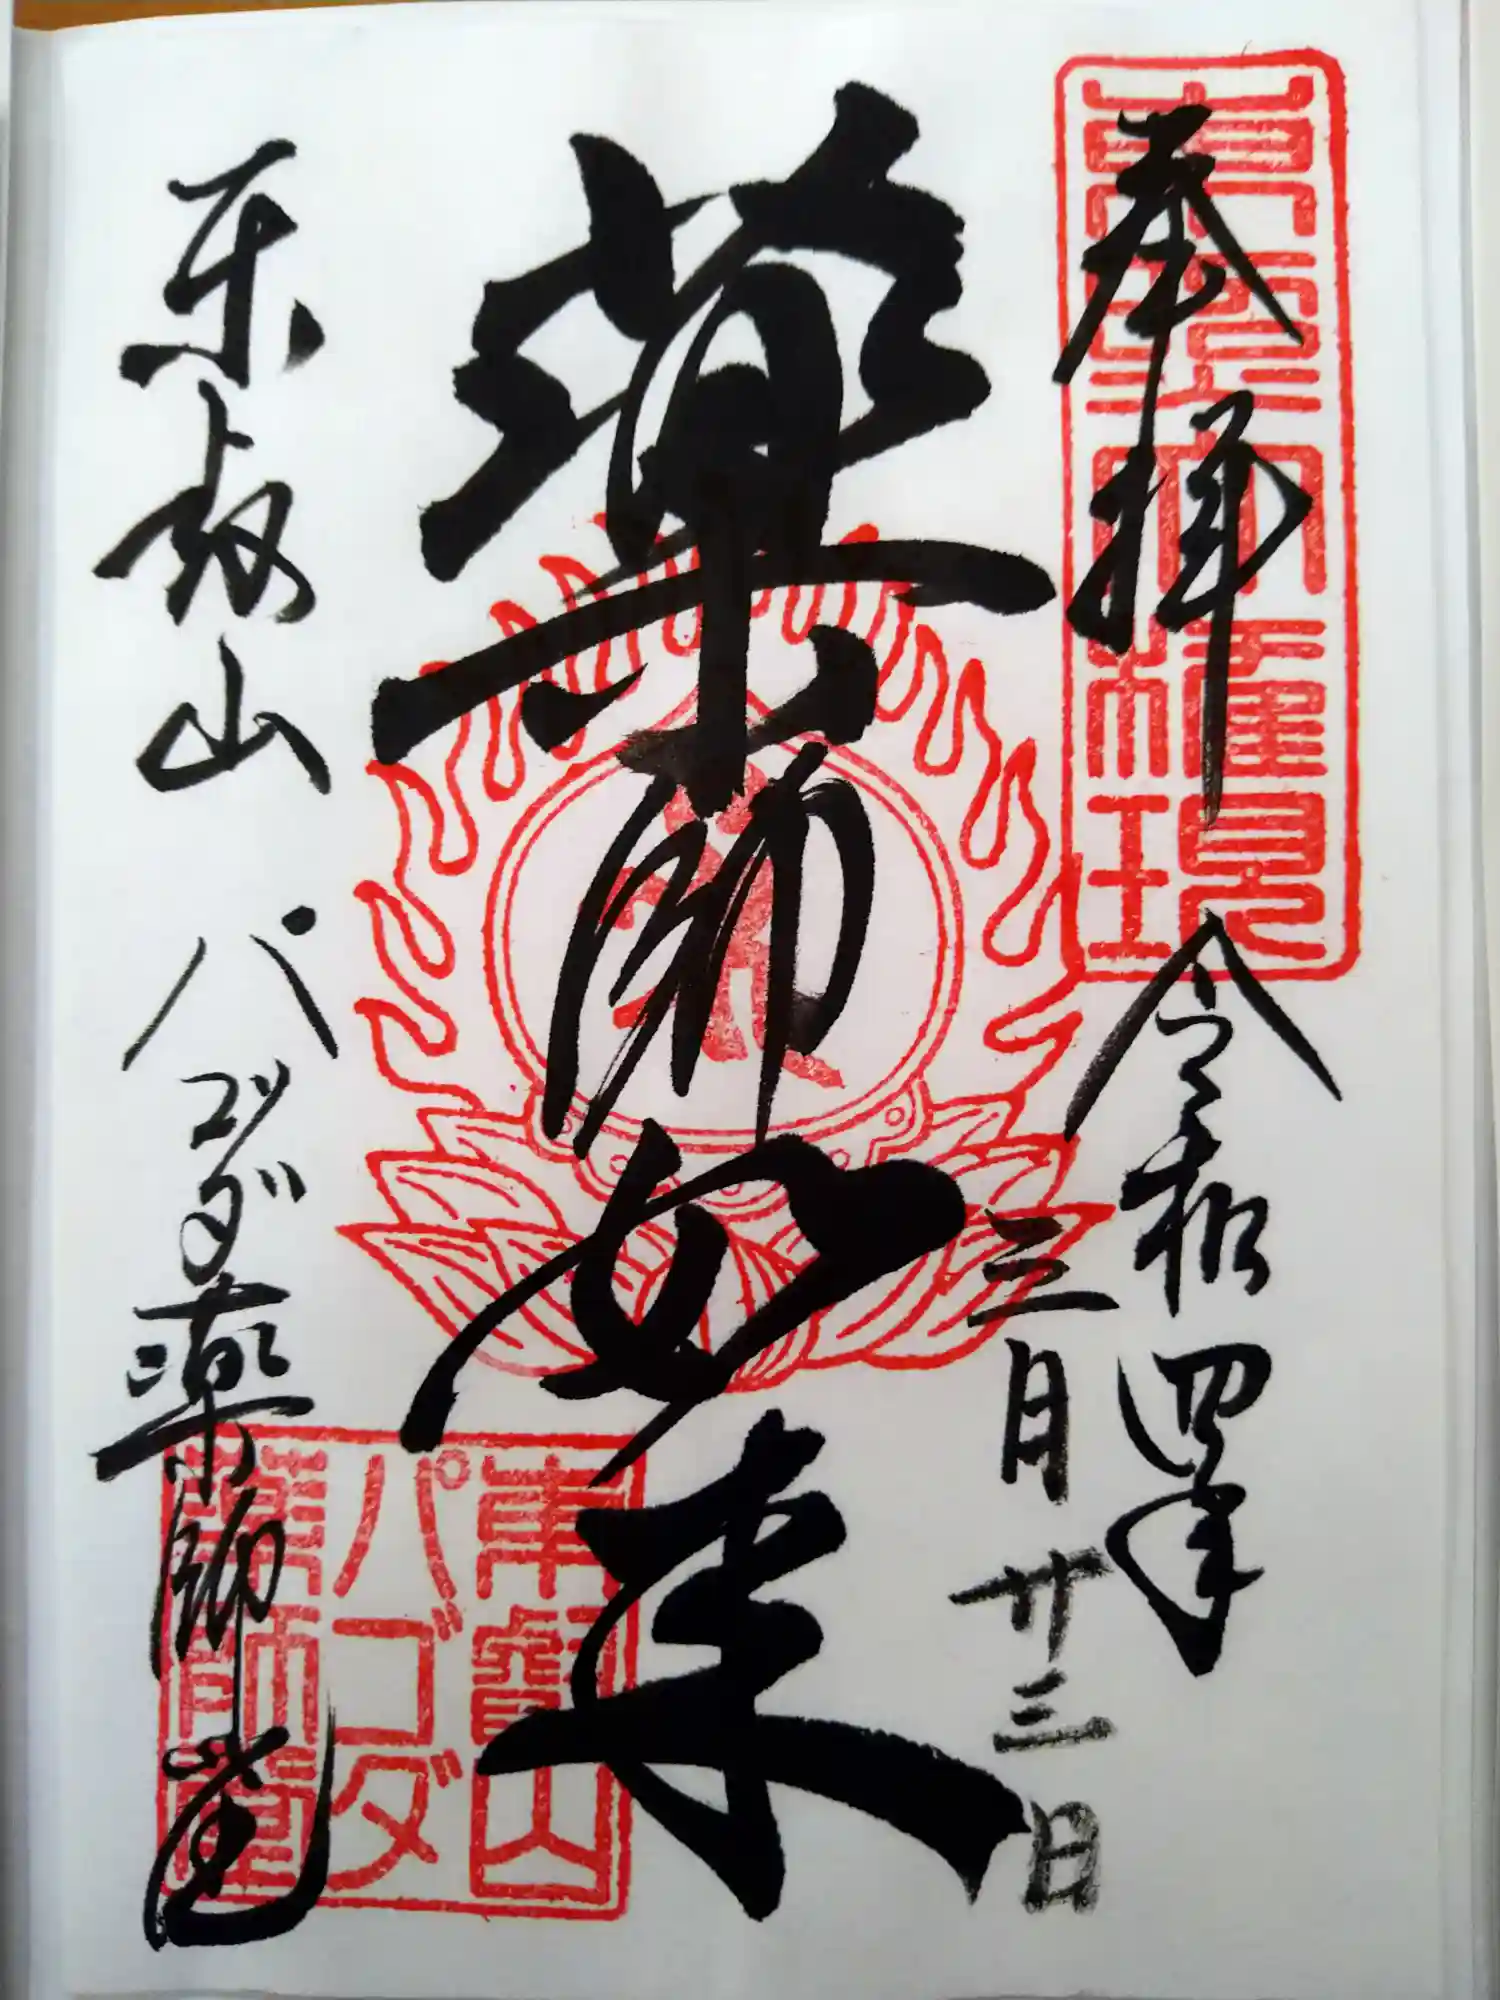 奉拝
東照大權現
令和四年
三月廿三日
薬師如来
東叡山 パゴダ薬師堂
東叡山
パゴダ
薬師堂